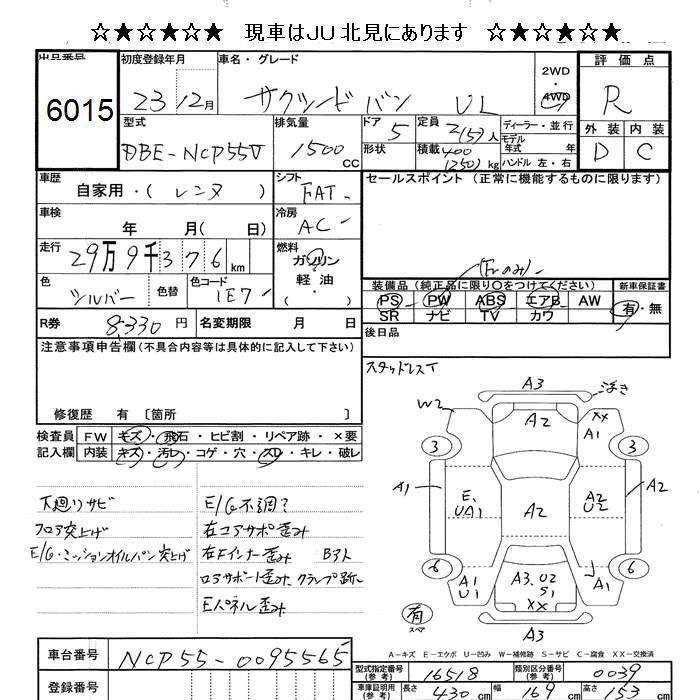 ☆★☆★☆★ 現車はJU北見にあります ☆★☆★☆★
出品番号 初度登録年月 車名・グレード 2WD 評価点
6015 23 12月 サクシードバン UL 4WD R
型式 排気量 ドア 5 定員 2(5)人 ディーラー・並行 外装 内装
DBE-NCP55V 1500cc 形状 積載 400(250)kg モデル年式 年 ハンドル 左・右 D C
車歴 自家用・(レンタ) シフト FAT セールスポイント (正常に機能するものに限ります)
車検 年 月(日) 冷房 AC
走行 29万9千376km 燃料 ガソリン 軽油 ( )
(Frのみ)
色 シルバー 色替 色コード 1E7 装備品(純正品に限り○をつけてください) 新車保証書
PS PW ABS エアB AW 有・無
SR ナビ TV カワ
R券 8,330円 名変期限 月 日 後日品
注意事項申告欄(不具合内容等は具体的に記入して下さい)
スタッドレスT
修復歴 有 〔箇所 〕
検査員 FW キズ・飛石・ヒビ割・リペア跡・×要
記入欄 内装 キズ・汚レ・コゲ・穴・スレ・キレ・破レ
下廻りサビ
フロア突上げ
E/G・ミッションオイルパン突上げ
E/G不調?
右コアサポ歪み
右Fインナー歪み
ロアサポート歪み、クランプ跡
Eパネル歪み
A3 浮き
W2 A2 XX A1
3 3
A1 E1 UA1 A2 A2 U2 A2
6 6
A1 U1 A3.U2 S1 XX A1
有 スペア A3
A-キズ E-エクボ U-凹み W-補修跡 S-サビ C-腐食 XX-交換済
車台番号 NCP55-0095565
型式指定番号(参考) 16518 類別区分番号(参考) 0039
登録番号
車庫証明用(参考) 長さ 430cm 幅 169cm 高さ 153cm